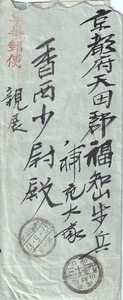 京都府天田郡福知山歩兵
補充大隊
香西少尉殿
親展
軍事郵便